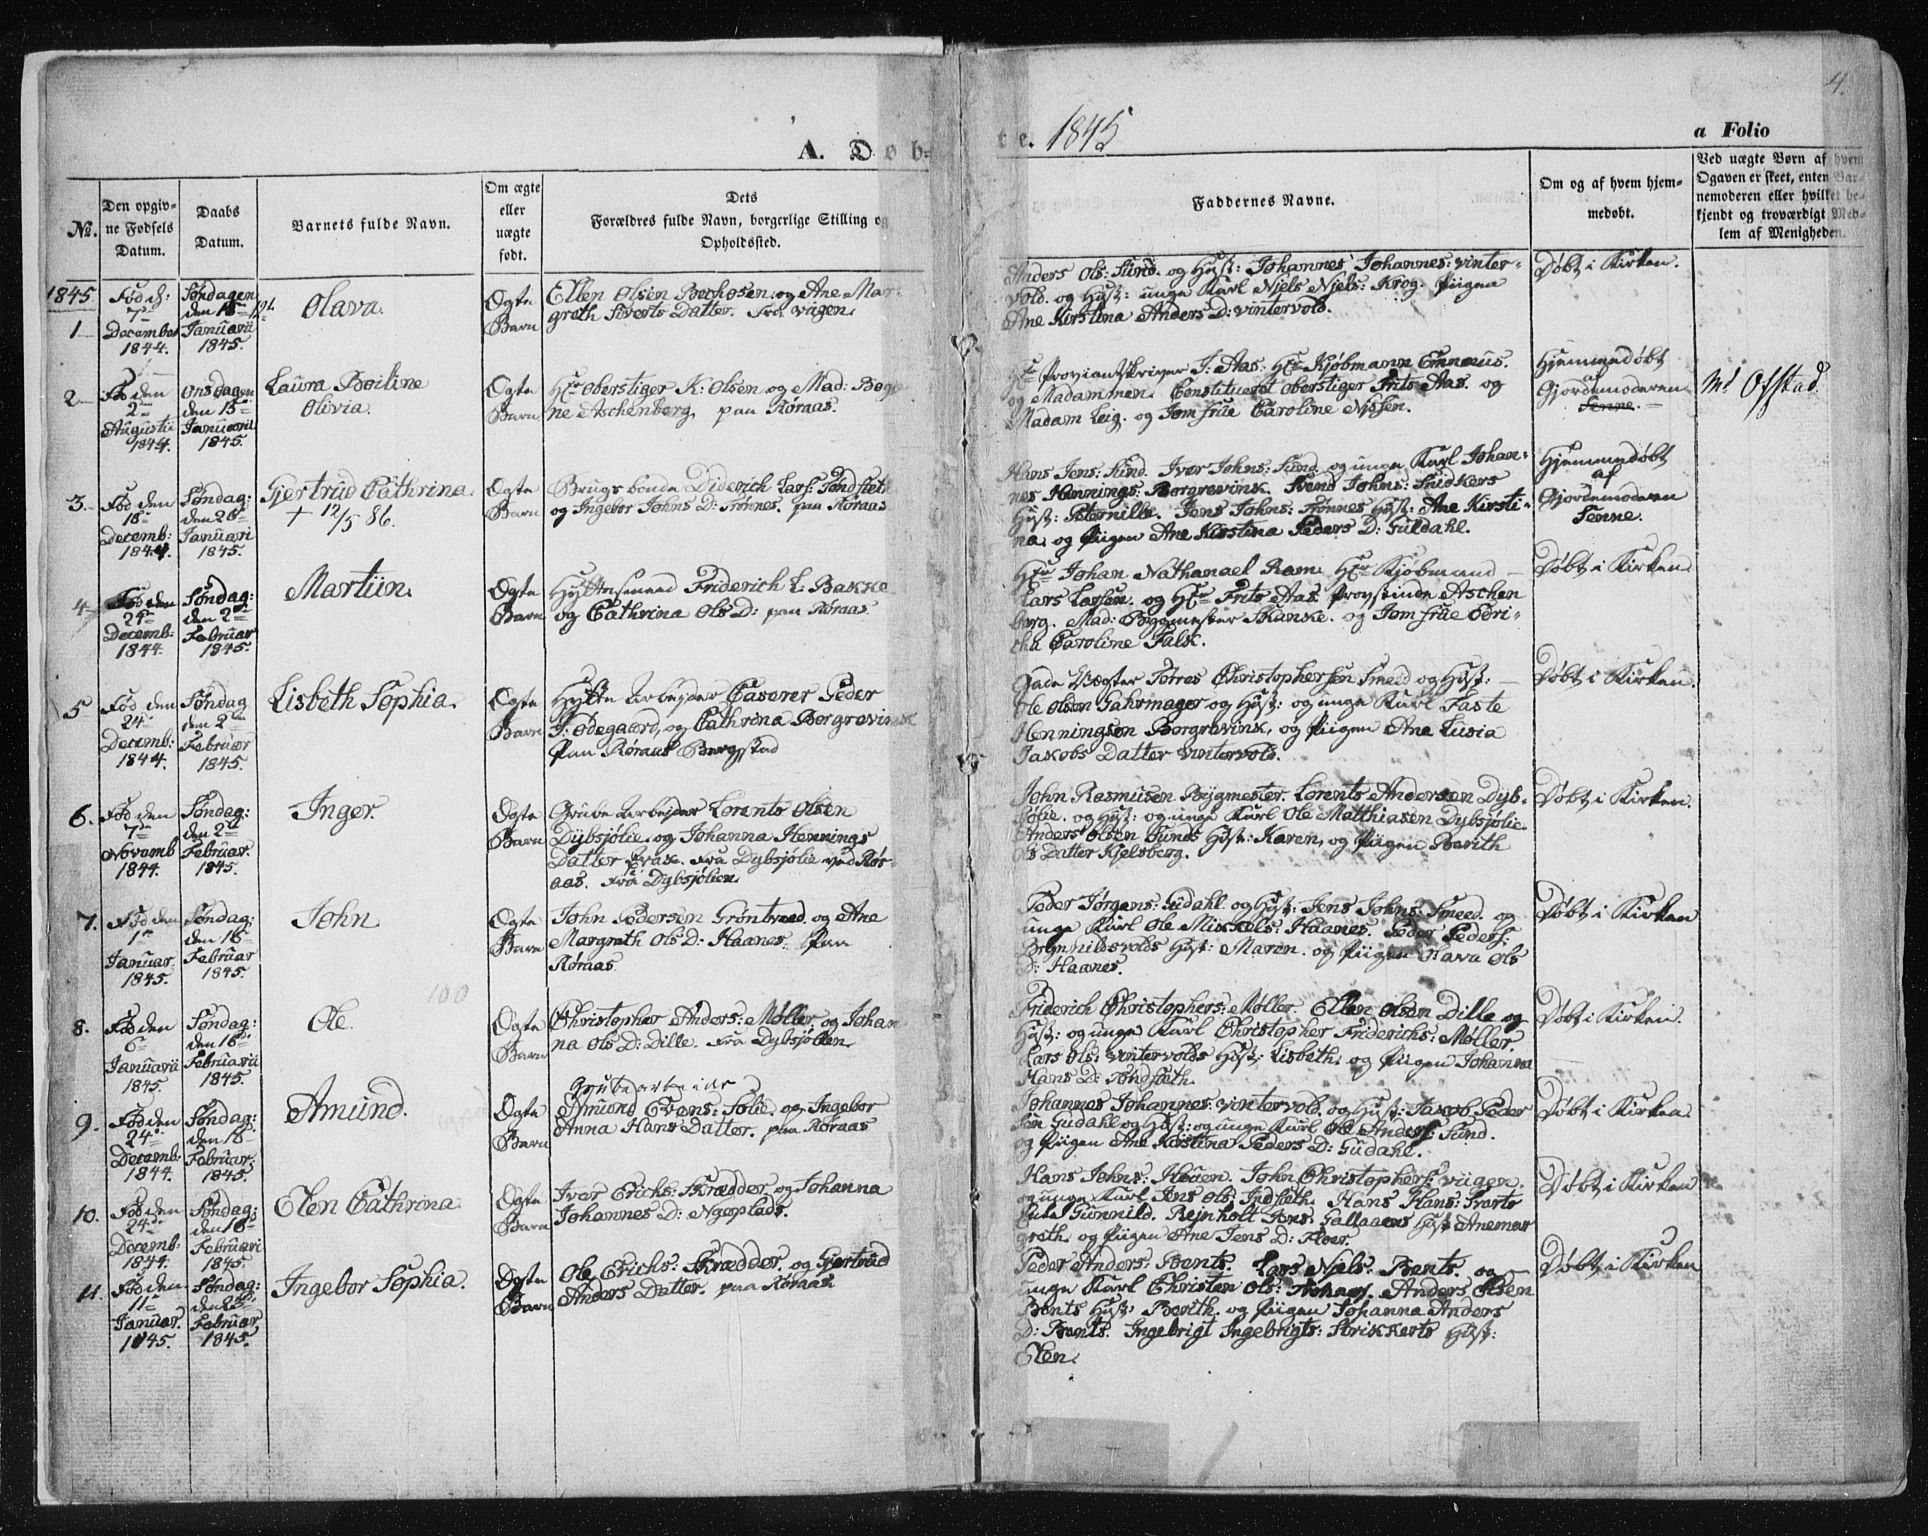 4.
A. Døb=
te. 1845
a Folio
№.
Den opgiv=
ne Fødsels
Datum.
Daabs
Datum.
Barnets fulde Navn.
Om ægte
eller
uægte
født.
Dets
Forældres fulde Navn, borgerlige Stilling og
Opholdssted.
Faddernes Navne.
Om og af hvem hjem=
medøbt.
Ved uægte Børn af hvem
Opgaven er skeet, enten Bar=
nemoderen eller hvilket be=
kjendt og troværdigt Med=
lem af Menigheden.
1845
1
Fød d:
7de
December
1844.
Søndagen
den
Januarii
1845.
Olava.
Ægte
Barn
Ellen Olsen og Ane Mar=
greth Siverts Datter. Fra Vigen.
Anders Ols: Sund. og Hust: Johannes Johannes: Vinter=
vold. og Hust: unge Karl Njels Njels: Krog. Piigen
Ane Kirstina Anders D: Vintervold.
Døbt i Kirken.
2.
Fød den
2de
Augustii
1844.
Onsdagen
den 15de
Januarii
1845.
Laura Boiline
Olivia.
Ægte
Barn
Hr: Oberstiger K: Olsen og Mad:
ne Aschenberg, paa Røraas.
Hr: Proviantskriver J: Aas: Hr: Kjøbmann Emmaus.
og Madammen. Constitueret Oberstiger Frits Aas. og
Madam Leig. og Jomfrue Caroline Nissen.
Hjemmedøbt
af
Gjordemoderen
Senne.
Ms Ofstad.
3.
Fød den
18de
Decemb:
1844.
Søndag:
den 26de
Januari
1845.
Gjertrud Cathrina.
+ 12/5 86.
Ægte
Barn
Brugs bonde Diderich Lars: Tondseth
og Ingebor Johns D: Trønnes. paa Røraas
Hans Jens: Sund. Iver Johns: Sund og unge Karl Johan=
nes Hennings: Borgrevink. Bend Johns: Snidkers
Hust: Peternille. Jens Johns: Trønnes Hust: Ane Kirsti=
na. og Piigen Ane Kirstina Peders D: Guldahl.
Hjemmedøbt
af
Gjordemoderen
Senne.
4
Fød den
24de
Decemb:
1844.
Søndag:
den 2den
Februar
1845.
Martiin.
Ægte
Barn
Friderich L: Bakke
og Cathrina Ols D: paa Røraas
Hr: Johan Nathanael Ram. Hr: Kjøbmand
Lars Larsen. og Hr: Frits Aas. Aschen
berg. Mad: Bygmester Skanke. og Jomfrue
Caroline Falk.
Døbt i Kirken
5
Fød den
24de
Decemb:
1844.
Søndag
den 2den
Februar
1845.
Lisbeth Sophia.
Ægte
Barn
Hytte Arbejder Caserer Peder
J: Ødegaard, og Cathrina Borgrevinck
Paa Røraas Bergstad
Gade Vægter Torres Christophersen Smeed og Hust:
Ole Olsen Gahrmager og Hust: og unge Karl Faste
Henningsen Borgrevink, og Piigen Ane Lusia
Jakobs Datter Vintervold.
Døbt i Kirken.
6.
Fød den
7de
Novemb
1844.
Søndag:
den 2de
Februar.
1845.
Inger.
Ægte
Barn
Grube Arbejder Lorents Olsen
Dybsjølie, og Johanna Hennings
Datter Fra Dybsjølie ved Rør=
aas. Fra Dybsjølien
John Rasmusen Bygmester. Lorents Andersen Dyb=
sjolie, og Hust: og unge Karl Ole Matthiasen Dybsjolie.
Anders Olsen Sunds Hust: Karen, og Piigen Berith
Ols Datter Kjelsberg.
Døbt i Kirken.
7.
Fød den
1de
Januar.
1845.
Søndag:
den 16de
Februar
1845.
John
Ægte
Barn
John Pedersen Grøntvad. og Ane
Margreth Ols D: Haanes. Paa
Røraas
Peder Jørgens: Gudahl. og Hust: Jens Johns: Smeed. og
unge Karl Ole Mikkels. Haanes. Peder Peders:
Brynnildsvolds Hust: Maren. og Piigen Olava Ols
D: Haanes.
Døbt i Kirken
8.
100
Fød den
6de
Januarii
1845.
Søndag:
den 16de
Februarii
1845.
Ole.
Ægte
Barn
Christopher Anders: Møller. og Johan
na Ols D: Dille. Fra Dybsjølien
Friderich Christophers: Møller. Ellen Olsen Dille og
Hust: og unge Karl Christopher Friderichs: Møller.
Lars Ols: Vintervolds Hust: Lisbeth. og Piigen Johanna
Hans D: Tondseth.
Døbt i Kirken.
9.
Fød den
24de
Decemb:
1844.
Søndag:
den 16de
Februar.
1845.
Amund.
Ægte
Barn
Grubearbeider
Amund Evens: Solie. og Ingebor
Anna Hans Datter. paa Røraas
Johannes Johannes: Vintervold. og Hust: Jakob Peder
sen Gudahl og Hust: og unge Karl Ole Anders: Sund.
og Piigen Ane Kirstina Peders D: Gudahl.
Døbt i Kirken.
10.
Fød den
24de
Decemb:
1844.
Søndag:
den 16de
Februari
1845.
Elen Cathrina.
Ægte
Barn
Iver Erichs: Skrædder og Johanna
Johannes D: Ngeplads.
Hans Johns: John Christophers: Viigen.
og unge Karl Jens Ols: Hans Hans:
Gunnild. Rejnholt Jens: Gallaaens Hust Anemar
greth. og Piigen Ane Jens D: Floer.
Døbt i Kirken
11.
Fød den
11de
Januar.
1845.
Søndag:
den 23de
Februar,
1845.
Ingebor Sophia.
Ægte
Barn
Ole Erichs: Skrædder. og Gjertrud
Anders Datter. paa Røraas.
Peder Anders. Bents. Lars Njels. Bents. og
unge Karl Christen Ols: Anders Olsen
Bents Hust: Berith. og Piigen Johanna Anders
D: Bents. Ingebrigt Ingebrigts: Strikkerts Hust:
Elen.
Døbt i Kirken